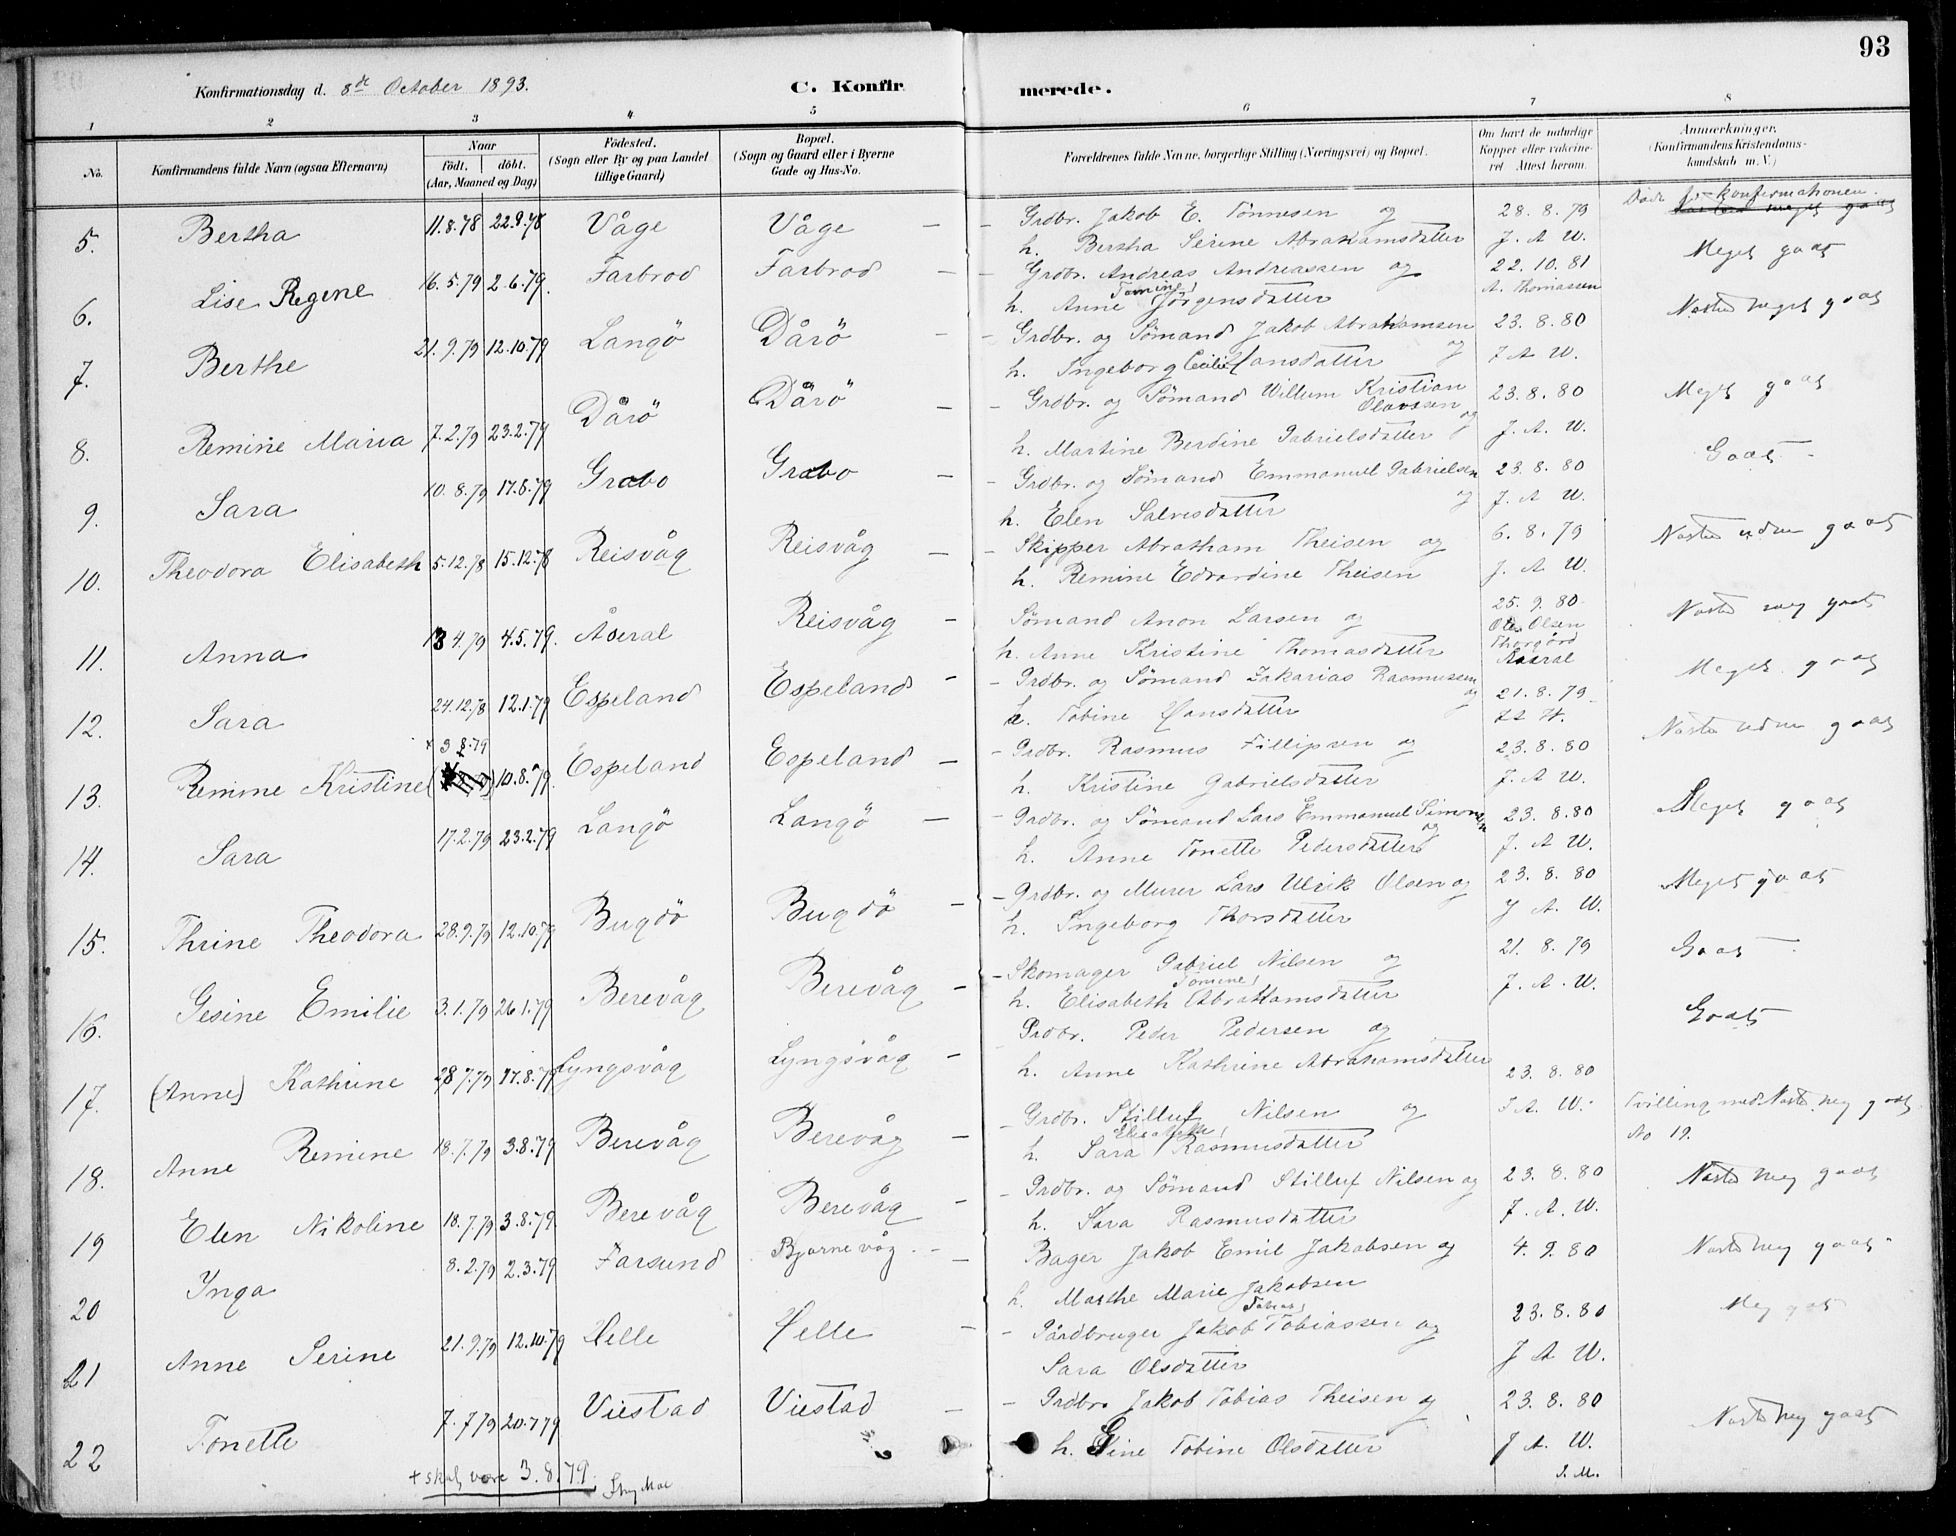 93
Konfirmationsdag d. 8de October 1893.
C. Konfirmerede.
1 2 3 4 5 6 7 8
No. Konfirmandens fulde Navn (ogsaa Efternavn) Naar født. døbt. (Aar, Maaned og Dag) Fødested. (Sogn eller By og paa Landet tillige Gaard) Bopæl. (Sogn og Gaard eller i Byerne Gade og Hus-No. Forældrenes fulde Navne, borgerlige Stilling (Næringsvei) og Bopæl. Om havt de naturlige Kopper eller vaccineret Attest herom. Anmærkninger. (Konfirmandens Kristendomskundskab m. V.)
5. Bertha 11.8.78 22.9.78 Våge Våge — Grdbr. Jakob E. Tønnesen og 28.8.79 Døde før konfirmationen.
h. Bertha Serine Abrahamsdatter J. A W.
6. Lise Regine 16.5.79 2.6.79. Farbrod Farbrod — Grdbr. Andreas Andreassen og 22.10.81 Meget godt
h. Anne Tomine Jørgensdatter A. Thomassen
7. Berthe 21.9.79 12.10.79 Langö Dårö — Grdbr. og Sømand Jakob Abrahamsen og 23.8.80 Næsten meget godt
h. Ingeborg Cecilie Hansdatter J A W.
8. Remine Maria 7.2.79 23.2.79 Dårö Dårö — Grdbr. og Sømand Willum Kristian Olavssen og 23.8.80 Meget godt
h. Martine Berdine Gabrielsdatter J. A. W.
9. Sara 10.8.79 17.8.79 Grabo Grabo — Grdbr. og Sømand Emmanuel Gabrielsen og 23.8.80 Godt
h. Elen Salvesdatter J. A W.
10. Theodora Elisabeth 5.12.78 15.12.78 Reisvåg Reisvåg — Skipper Abraham Theisen og 6.8.79 Næsten udm godt
h. Remine Edvardine Theisen J. A W.
11. Anna 13 4.79 4.5.79. Åseral Reisvåg — Sømand Anon Larsen og 25.9.80 Næsten meg godt
h. Anne Kristine Thomasdatter Ole Olsen Aaseral
12. Sara 24.12.78 12.1.79 Espeland Espeland — Grdbr. og Sømand Zakarias Rasmussen og 21.8.79 Meget godt
h. Tobine Hansdatter
13. Remine Kristine + 3 8.79 10.8.79. Espeland Espeland — Grdbr. Rasmus Fillipsen og 23.8.80 Næsten udm godt
h. Kristine Gabrielsdatter J. A W.
14. Sara 17.2.79 23.2.79 Langö Langö — Grdbr. og Sømand Lars Emmanuel Simonsen og 23.8.80 Meget godt
h. Anne Tonette Pedersdatter J A W.
15. Thrine Theodora 28.9.79 12.10.79 Bugdö Bugdö — Grdbr. og Murer Lars Ulrik Olsen og 23.8.80 Meget godt
h. Ingeborg Thorsdatter J A W.
16. Gesine Emilie 3.1.79 26.1.79 Berevåg Berevåg — Skomager Gabriel Nilsen og 21.8.79 Godt
h. Elisabeth Tomine Abrahamsdatter J. A. W.
17. (Anne) Kathrine 28 7.79 17.8.79 Lyngsvåg Lyngsvåg — Grdbr. Peder Pedersen og Godt
h. Anne Kathrine Abrahamsdatter 23.8.80
18. Anne Remine 18.7.79 3.8.79 Berevåg Berevåg — Grdbr. Stilluf Nilsen og J A W. Tvilling med No 19. Næsten meg godt
h. Sara Rasmusdatter
19 Elen Nikoline 18.7.79 3.8.79. Berevåg Berevåg — Grdbr. og Sømand Stilluf Nilsen og 23.8.80 Næsten meg godt
h. Sara Rasmusdatter J. A. W.
20 Inga 8.2.79 2.3.79 Farsund Bjørnevåg — Bager Jakob Emil Jakobsen og 4.9.80 Næsten meg godt
h. Marthe Marie Jakobsen
21 Anne Serine 21.9.79 12.10.79 Helle Helle — Gårdbruger Jakob Tobias Tobiassen og 23.8.80 Meg godt
Sara Olsdatter J A W.
22 Tonette 7.7 79 20.7 79 Viestad Viestad — Grdbr. Jakob Tobias Theisen og 23.8.80 Næsten meg godt
h. Gine Tobine Olsdatter J A. W.
+ skal være 3.8.79.
S.M.